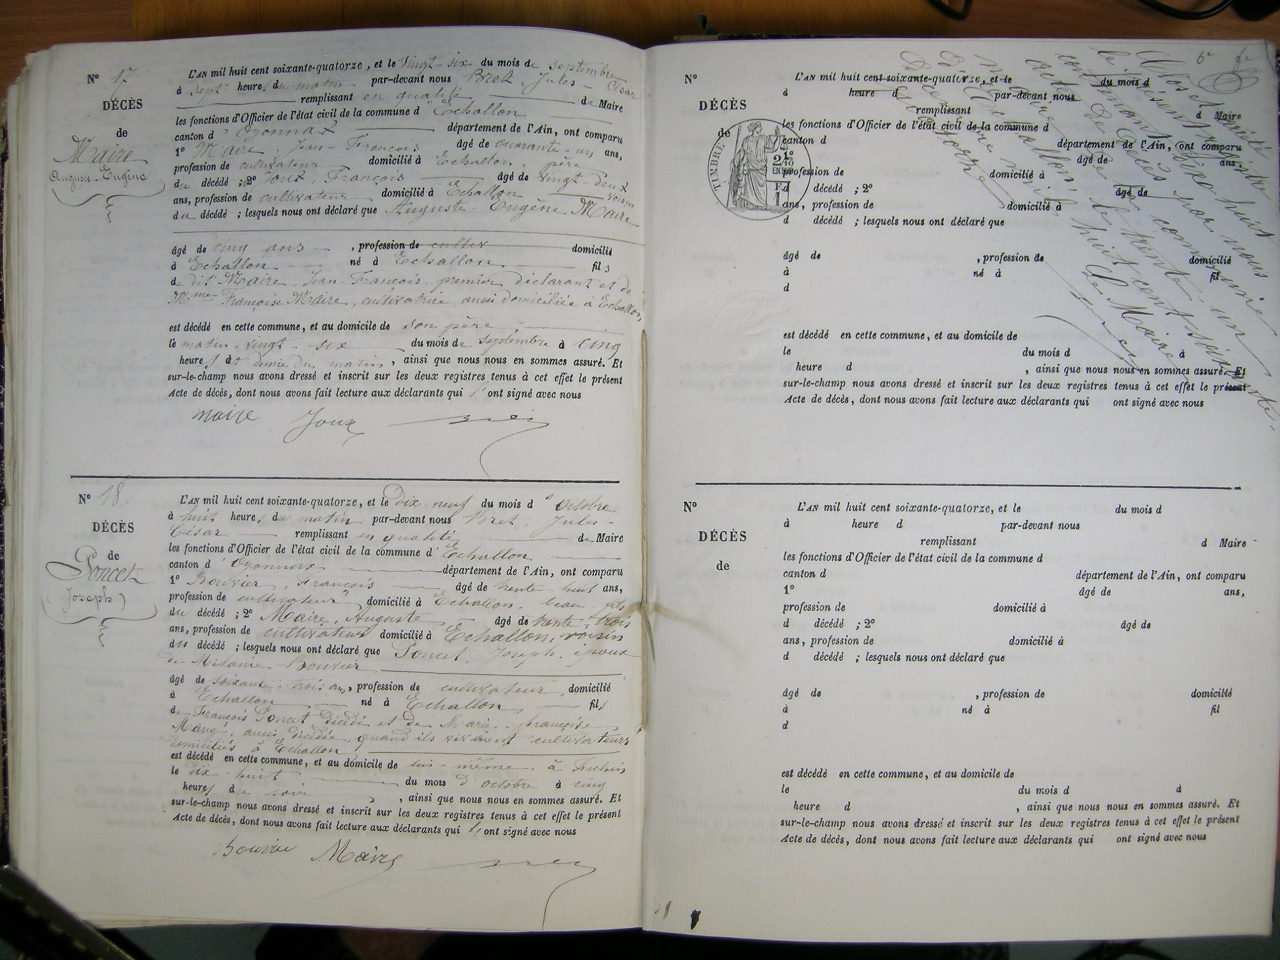 N° 17
DÉCÈS
de
Maire
Auguste-Eugène
L'AN mil huit cent soixante-quatorze, et le vingt-six du mois de septembre
à sept heures du matin par-devant nous Bret, Jules-César
remplissant en qualité de Maire
les fonctions d'Officier de l'état civil de la commune d'Echallon
canton d'Oyonnax département de l'Ain, ont comparu
1° Maire Jean-François âgé de quarante-un ans,
profession de cultivateur domicilié à Echallon, père
du décédé ; 2° Joux, François âgé de vingt-deux
ans, profession de cultivateur domicilié à Echallon voisin
du décédé ; lesquels nous ont déclaré que Auguste-Eugène Maire
âgé de cinq ans , profession de cultiv domicilié
à Echallon né à Echallon fils
de dit Maire, Jean-François, premier déclarant et de
Mme Françoise Maire, cultivatrice aussi domiciliée à Echallon,
est décédé en cette commune, et au domicile de son père,
le matin vingt-six du mois de septembre à cinq
heures du matin , ainsi que nous nous en sommes assuré. Et
sur-le-champ nous avons dressé et inscrit sur les deux registres tenus à cet effet le présent
Acte de décès, dont nous avons fait lecture aux déclarants qui l'ont signé avec nous
Maire Joux
N° 18
DÉCÈS
de
Poncet
Joseph
L'AN mil huit cent soixante-quatorze, et le dix-neuf du mois d'octobre
à huit heures du matin par-devant nous Bret, Jules-
César remplissant en qualité de Maire
les fonctions d'Officier de l'état civil de la commune d'Echallon
canton d'Oyonnax département de l'Ain, ont comparu
1° Bouvier François âgé de trente-huit ans,
profession de cultivateur domicilié à Echallon, beau-fils
du décédé ; 2° Maire, Auguste âgé de trente-trois
ans, profession de cultivateur domicilié à Echallon, voisin
du décédé ; lesquels nous ont déclaré que Poncet, Joseph, époux
de Bouvier
âgé de soixante-trois ans, profession de cultivateur domicilié
à Echallon né à Echallon fils
de François Poncet décédé et de Marie-Françoise
aussi décédée, quand ils vivaient cultivateurs
domiciliés à Echallon
est décédé en cette commune, et au domicile de lui-même à
le dix-huit du mois d'octobre à cinq
heures du soir , ainsi que nous nous en sommes assuré. Et
sur-le-champ nous avons dressé et inscrit sur les deux registres tenus à cet effet le présent
Acte de décès, dont nous avons fait lecture aux déclarants qui l'ont signé avec nous
Bouvier Maire
N°
DÉCÈS
de
TIMBRE
L'AN mil huit cent soixante-quatorze, et le du mois d
à heure d par-devant nous
remplissant d Maire
les fonctions d'Officier de l'état civil de la commune d
canton d département de l'Ain, ont comparu
1° âgé de ans,
profession de domicilié à
d décédé ; 2° âgé de
ans, profession de domicilié à
d décédé ; lesquels nous ont déclaré que
âgé de , profession de domicilié
à né à fil
d
est décédé en cette commune, et au domicile de
le du mois d à
heure d , ainsi que nous nous en sommes assuré. Et
sur-le-champ nous avons dressé et inscrit sur les deux registres tenus à cet effet le présent
Acte de décès, dont nous avons fait lecture aux déclarants qui ont signé avec nous
Le Maire
N°
DÉCÈS
de
L'AN mil huit cent soixante-quatorze, et le du mois d
à heure d par-devant nous
remplissant d Maire
les fonctions d'Officier de l'état civil de la commune d
canton d département de l'Ain, ont comparu
1° âgé de ans,
profession de domicilié à
d décédé ; 2° âgé de
ans, profession de domicilié à
d décédé ; lesquels nous ont déclaré que
âgé de , profession de domicilié
à né à fil
d
est décédé en cette commune, et au domicile de
le du mois d à
heure d , ainsi que nous nous en sommes assuré. Et
sur-le-champ nous avons dressé et inscrit sur les deux registres tenus à cet effet le présent
Acte de décès, dont nous avons fait lecture aux déclarants qui ont signé avec nous